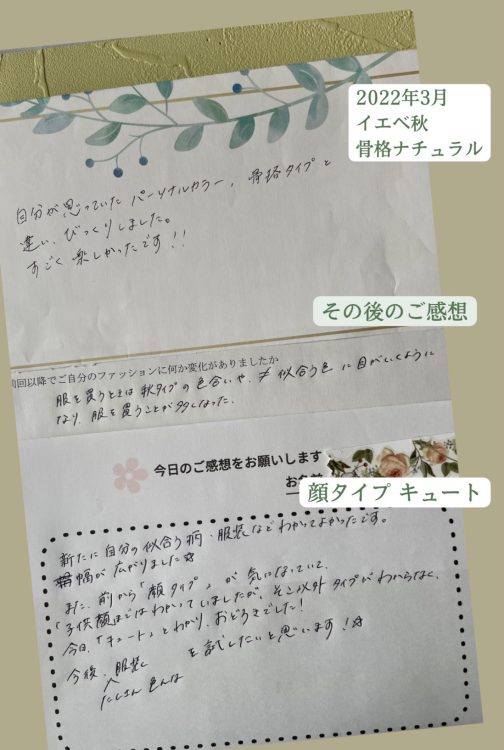 2022年3月
イエベ秋
骨格ナチュラル
自分が思っていた パーソナルカラー、骨格タイプと
違い、びっくりしました。
すごく 楽しかったです!!
その後のご感想
前回以降でご自分のファッションに何か変化がありましたか
服を買うときは 秋タイプの色合いや、≠ 似合う色 に目がいくように
なり、服を買うことが多くなった。
今日のご感想をお願いします
お名前
顔タイプ キュート
新たに 自分の似合う柄・服装などわかってよかったです。
幅が 広がりました☆
また、前から「顔タイプ」が 気になっていて、
「子供顔」まではわかっていましたが、そこ以外 タイプがわからなく、
今日、「キュート」とわかり、おどろきでした!
今後、服装 を試したいと思います!☆
たくさん 色んな